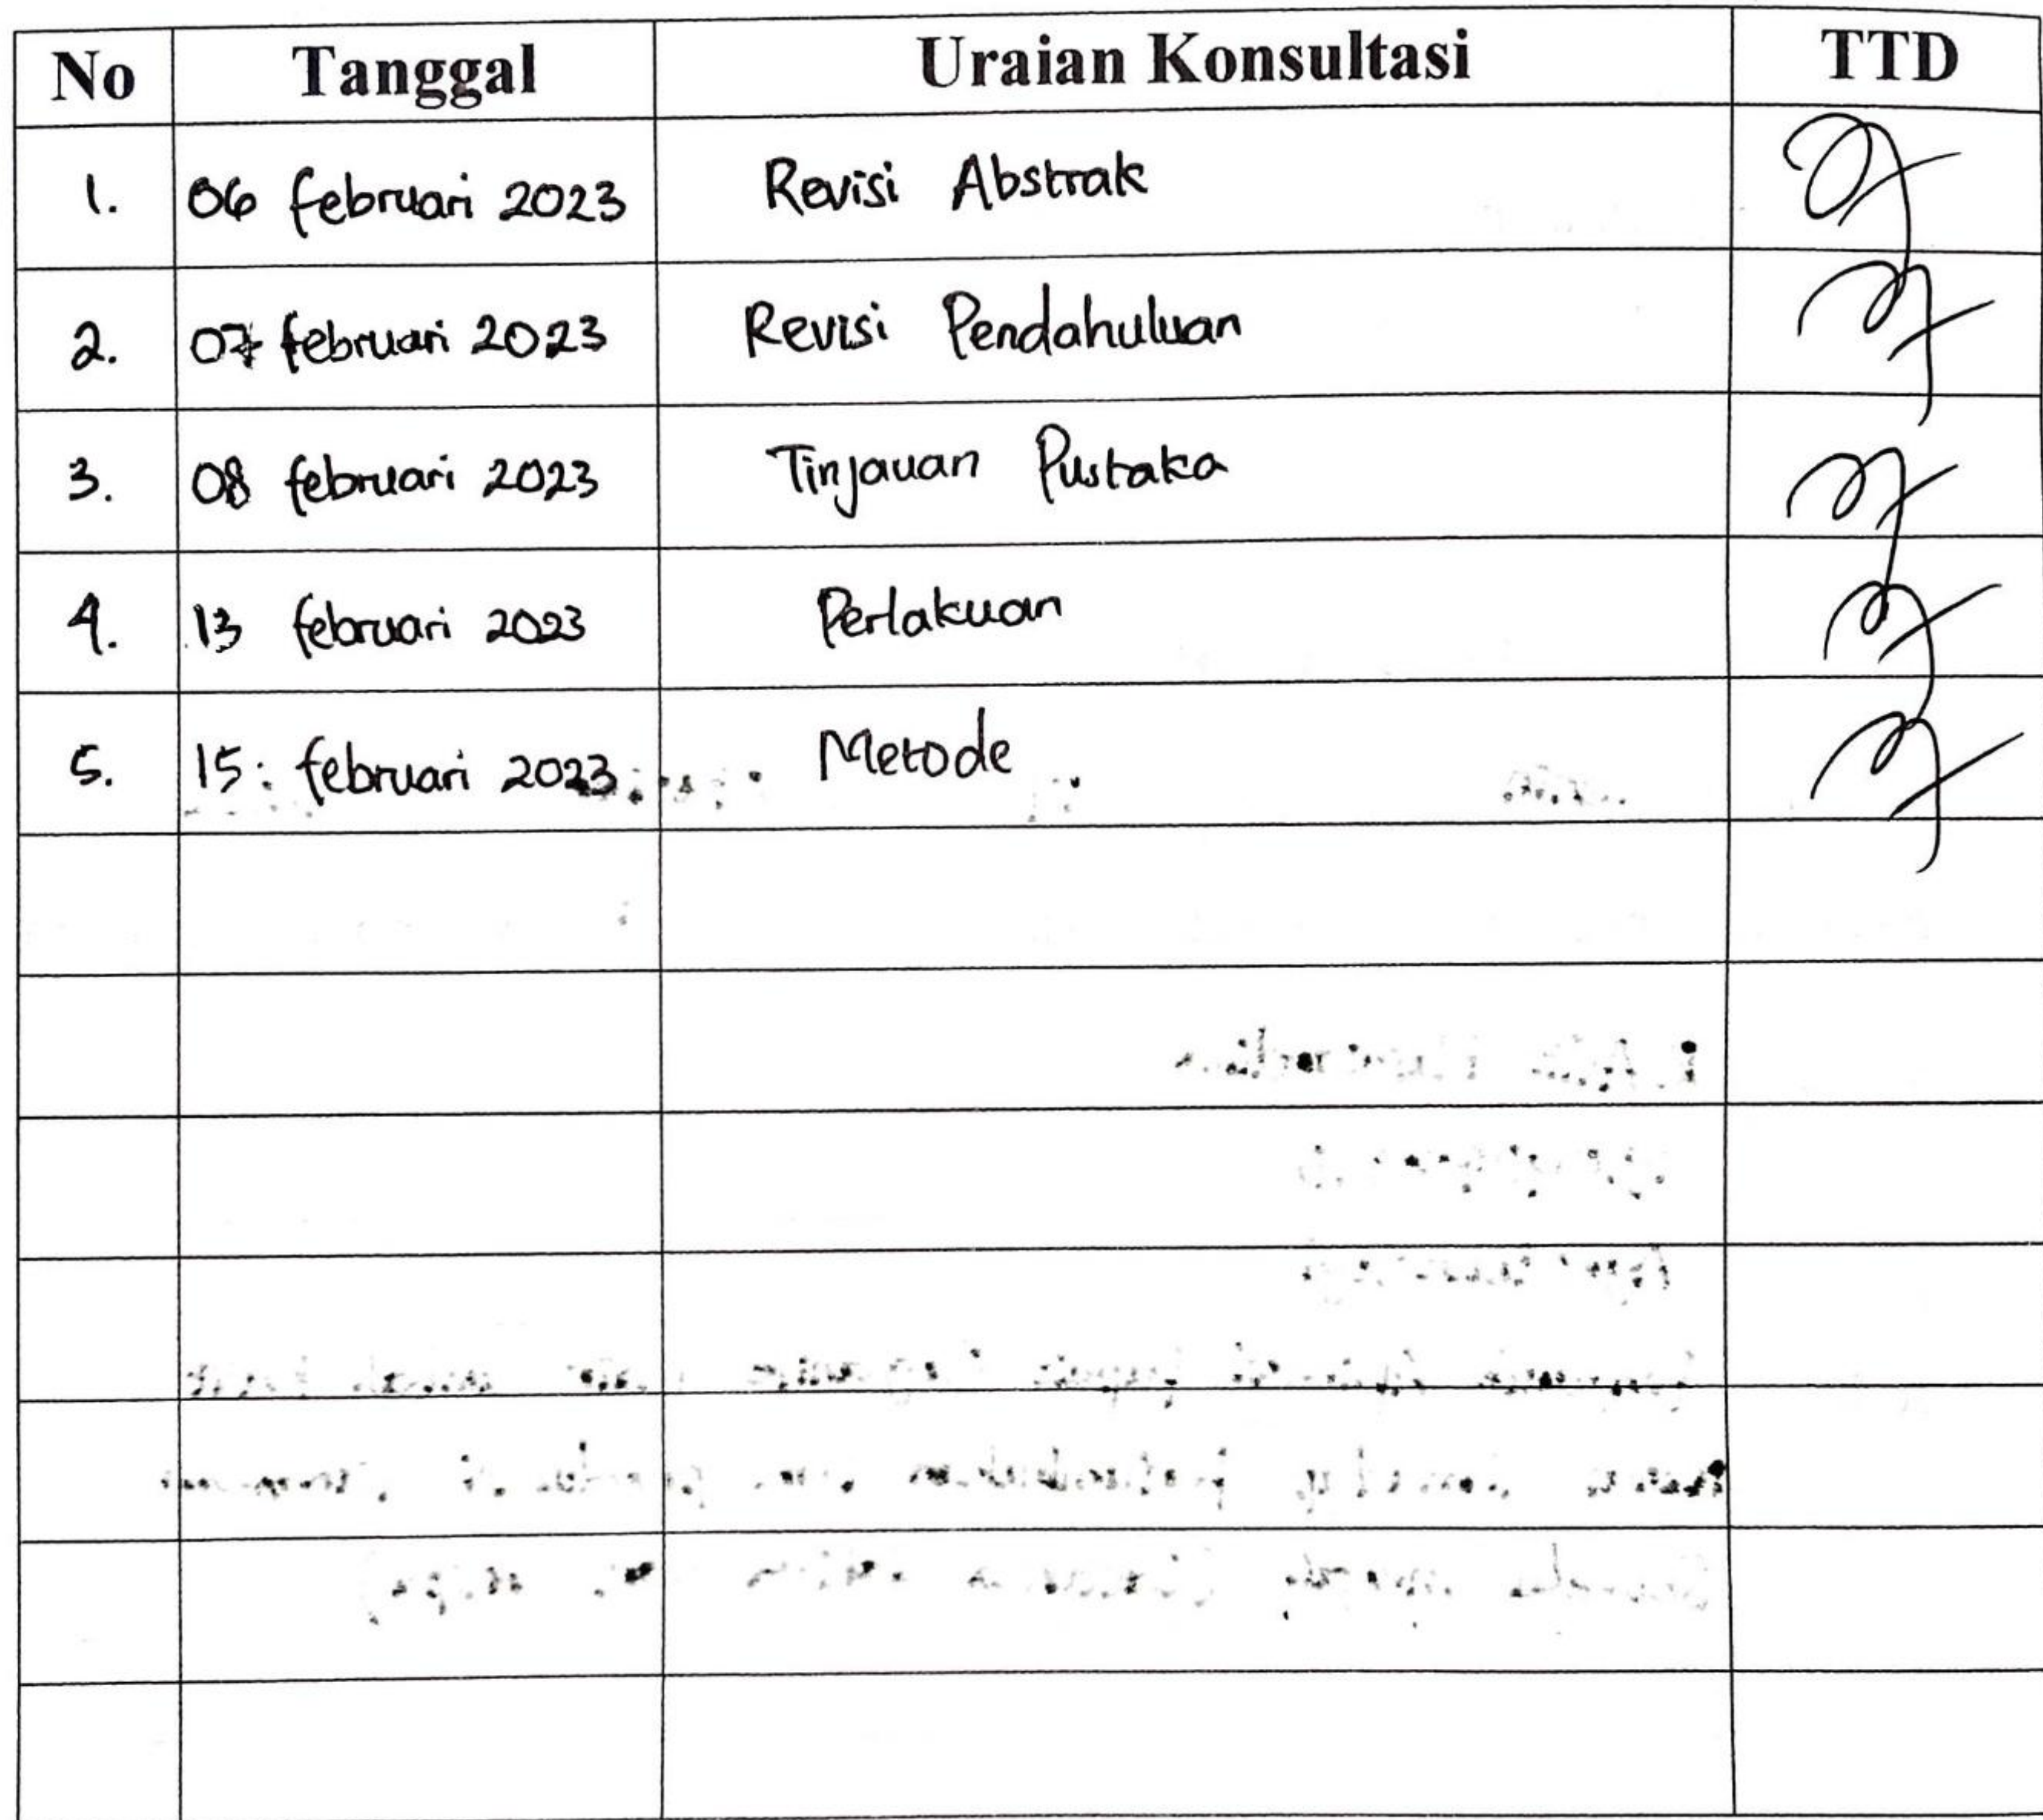 No Tanggal Uraian Konsultasi TTD
1. 06 februari 2023 Revisi Abstrak
2. 07 februari 2023 Revisi Pendahuluan
3. 08 februari 2023 Tinjauan Pustaka
4. 13 februari 2023 Perlakuan
5. 15 februari 2023 Metode